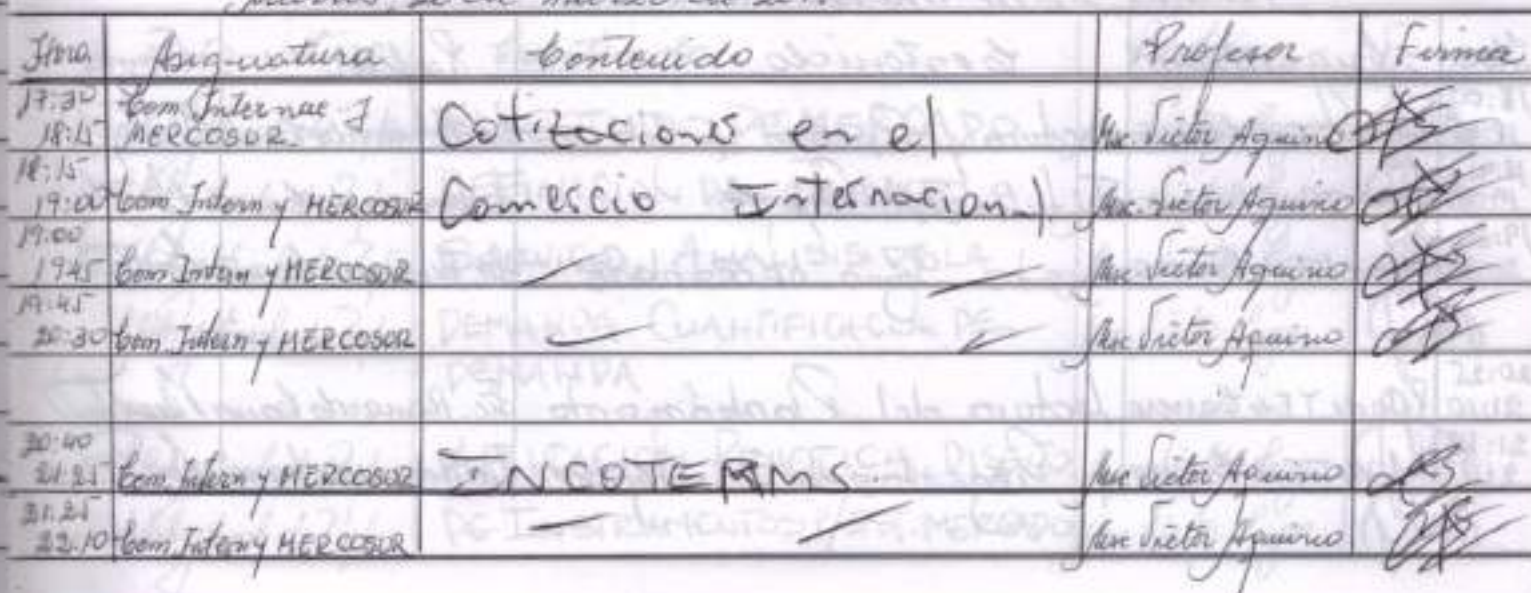 Hora Asignatura Contenido Profesor Firma
17:30 Com. Internac. y
18:15 MERCOSUR Cotizaciones en el Msc. Victor Aquino
18:15
19:00 Com. Intern y MERCOSUR Comercio Internacional. Msc. Victor Aquino
19:00
19:45 Com. Intern y MERCOSUR Msc Victor Aquino
19:45
20:30 Com. Intern y MERCOSUR Msc Victor Aquino
20:40
21:25 Com. Intern y MERCOSUR INCOTERMS. Msc Victor Aquino
21:25
22:10 Com. Intern y MERCOSUR Msc Victor Aquino